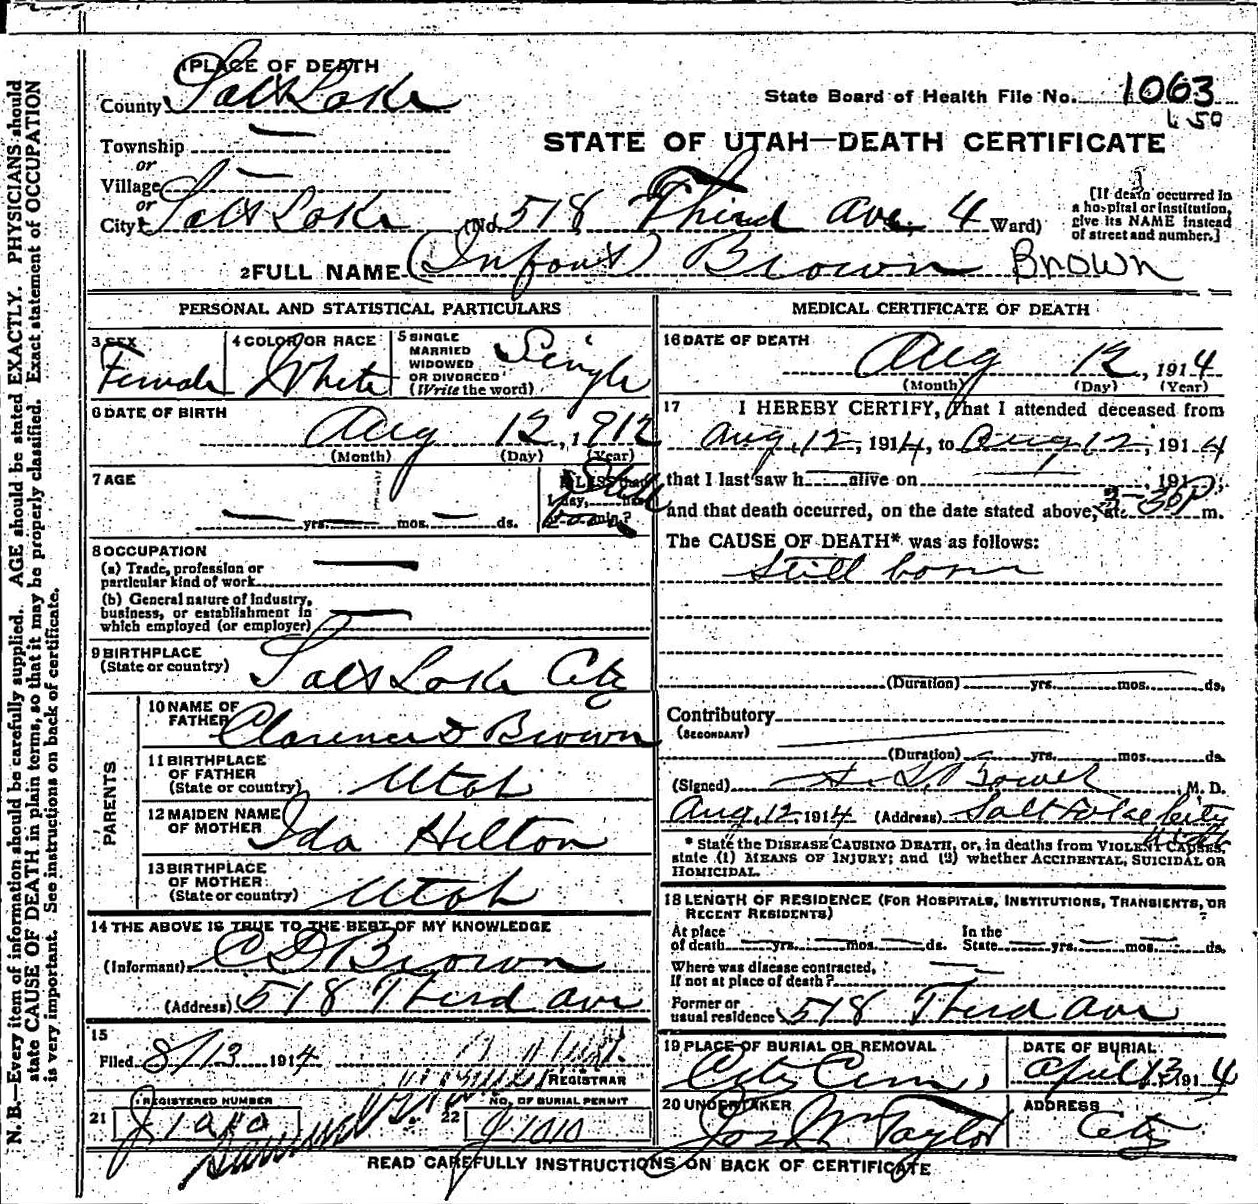 N. B.—Every item of information should be carefully supplied. AGE should be stated EXACTLY. PHYSICIANS should
state CAUSE OF DEATH in plain terms, so that it may be properly classified. Exact statement of OCCUPATION
is very important. See instructions on back of certificate.
1 PLACE OF DEATH
County Salt Lake
State Board of Health File No. 1063
Township —
or
Village —
or
City Salt Lake
STATE OF UTAH—DEATH CERTIFICATE
(No. 518 Third Ave, 4 Ward)
[If death occurred in
a hospital or institution,
give its NAME instead
of street and number.]
2 FULL NAME (Infant) Brown Brown
PERSONAL AND STATISTICAL PARTICULARS
3 SEX
Female
4 COLOR OR RACE
White
5 SINGLE
MARRIED
WIDOWED
OR DIVORCED
(Write the word)
Single
6 DATE OF BIRTH
Aug 12, 1912
(Month) (Day) (Year)
7 AGE
— yrs. — mos. — ds.
If LESS than
1 day, hrs.
or min.?
Still
born
8 OCCUPATION
(a) Trade, profession or
particular kind of work —
(b) General nature of industry,
business, or establishment in
which employed (or employer) —
9 BIRTHPLACE
(State or country) Salt Lake City
PARENTS
10 NAME OF
FATHER Clarence D Brown
11 BIRTHPLACE
OF FATHER
(State or country) Utah
12 MAIDEN NAME
OF MOTHER Ida Hilton
13 BIRTHPLACE
OF MOTHER
(State or country) Utah
14 THE ABOVE IS TRUE TO THE BEST OF MY KNOWLEDGE
(Informant) C D Brown
(Address) 518 Third Ave
15
Filed 8/13 1914
REGISTRAR
21 REGISTERED NUMBER
22 NO. OF BURIAL PERMIT
J 1010
MEDICAL CERTIFICATE OF DEATH
16 DATE OF DEATH
Aug 12, 1914
(Month) (Day) (Year)
17 I HEREBY CERTIFY, That I attended deceased from
Aug. 12, 1914, to Aug 12, 1914
that I last saw h — alive on — , 191 ,
and that death occurred, on the date stated above, at 30 P m.
The CAUSE OF DEATH* was as follows:
Still born
(Duration) yrs. mos. ds.
Contributory
(SECONDARY)
(Duration) yrs. mos. ds.
(Signed) M. D.
Aug. 12 1914 (Address) Salt Lake City
Utah
* State the DISEASE CAUSING DEATH, or, in deaths from VIOLENT CAUSES,
state (1) MEANS OF INJURY; and (2) whether ACCIDENTAL, SUICIDAL OR
HOMICIDAL.
18 LENGTH OF RESIDENCE (FOR HOSPITALS, INSTITUTIONS, TRANSIENTS, OR
RECENT RESIDENTS)
At place
of death — yrs. — mos. — ds.
In the
State — yrs. — mos. — ds.
Where was disease contracted,
If not at place of death? —
Former or
usual residence 518 Third Ave
19 PLACE OF BURIAL OR REMOVAL
City Cem,
DATE OF BURIAL
April 13 1914
20 UNDERTAKER
Jos Wm Taylor
ADDRESS
City
READ CAREFULLY INSTRUCTIONS ON BACK OF CERTIFICATE